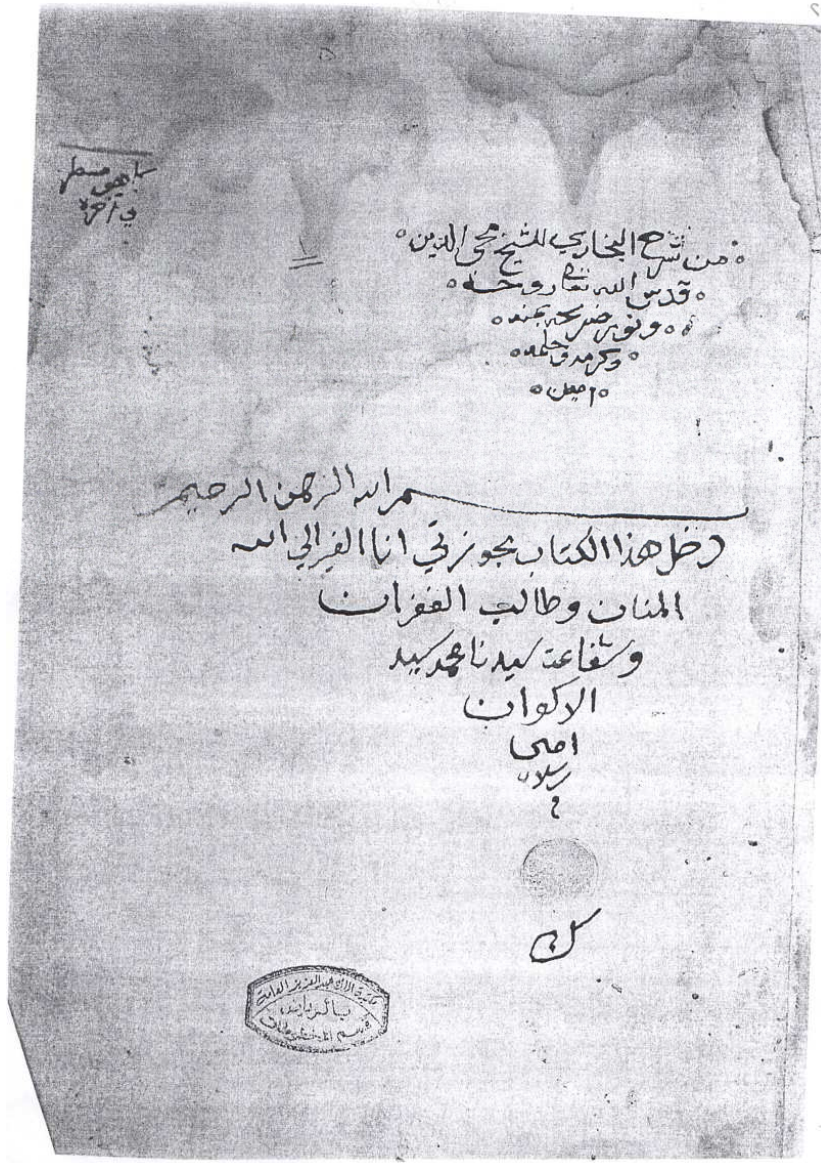 من شرح البخاري للشيخ محي الدين
قدس الله تعالى روحه
ونور ضريحه بمنه
وكرمه وحلمه
امين
بسم الله الرحمن الرحيم
دخل هذا الكتاب بحوزتي انا الفقير الي الله
المنان وطالب الغفران
وشفاعة سيدنا محمد سيد
الاكوان
مكتبة الملك عبد العزيز العامة
بالرياض
قسم المخطوطات